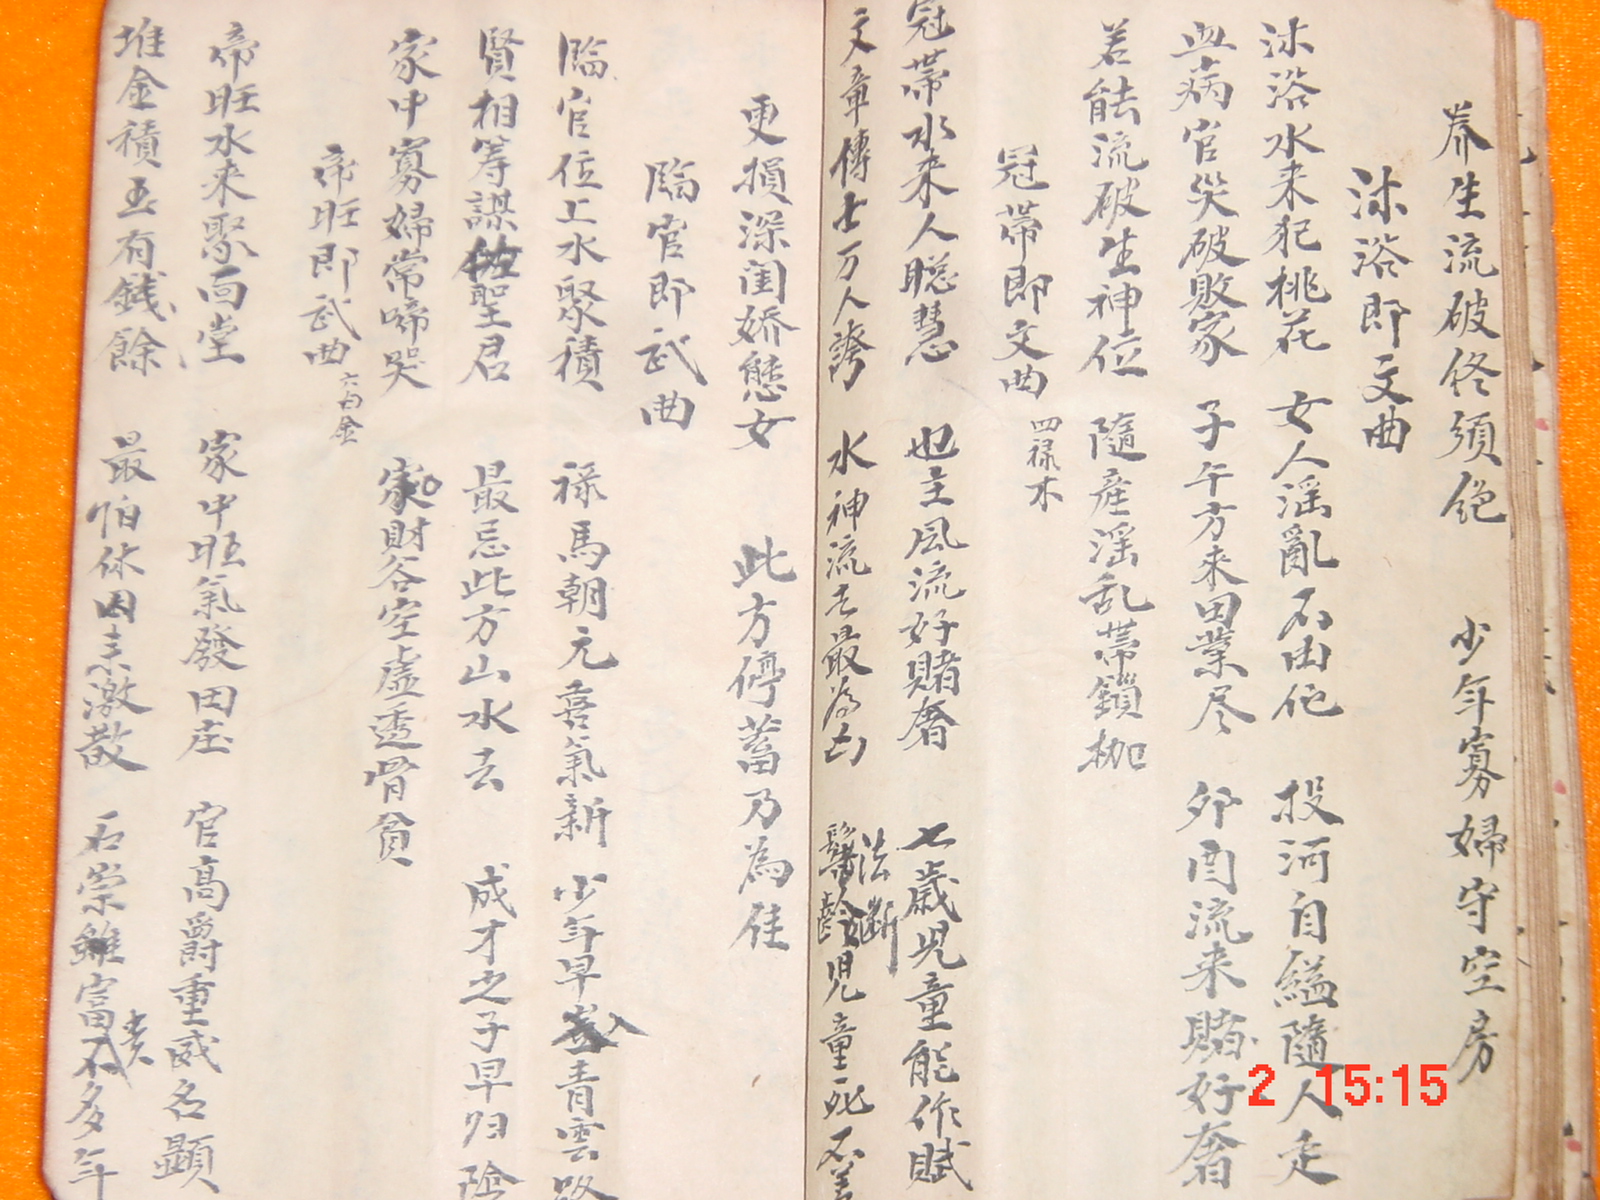 养生流破終須絕 少年寡婦守空房
沐浴即文曲
沐浴水来犯桃花 女人淫亂不由他 投河自縊隨人走
血病官災破敗家 子午方来田業尽 夘酉流来賭好奢
若能流破生神位 隨産淫乱帶鎖枷
冠帶即文曲 四禄木
冠帶水来人聪慧 也主風流好賭奢 七歲児童能作賦
文章傳士万人誇 水神流去最為凶 髫齡児童死不
法断
更損深闺娇態女 此方停蓄乃為佳
臨官即武曲
臨官位上水聚積 禄馬朝元喜氣新 少年早入青雲路
賢相籌謀佐聖君 最忌此方山水去 成才之子早归陰
家中寡婦常啼哭 家財谷空虛透骨貧
帝旺即武曲 六白金
帝旺水来聚面堂 家中旺氣發田庄 官高爵重威名顯
堆金積玉有錢餘 最怕休囚来激散 石崇雖富不多年